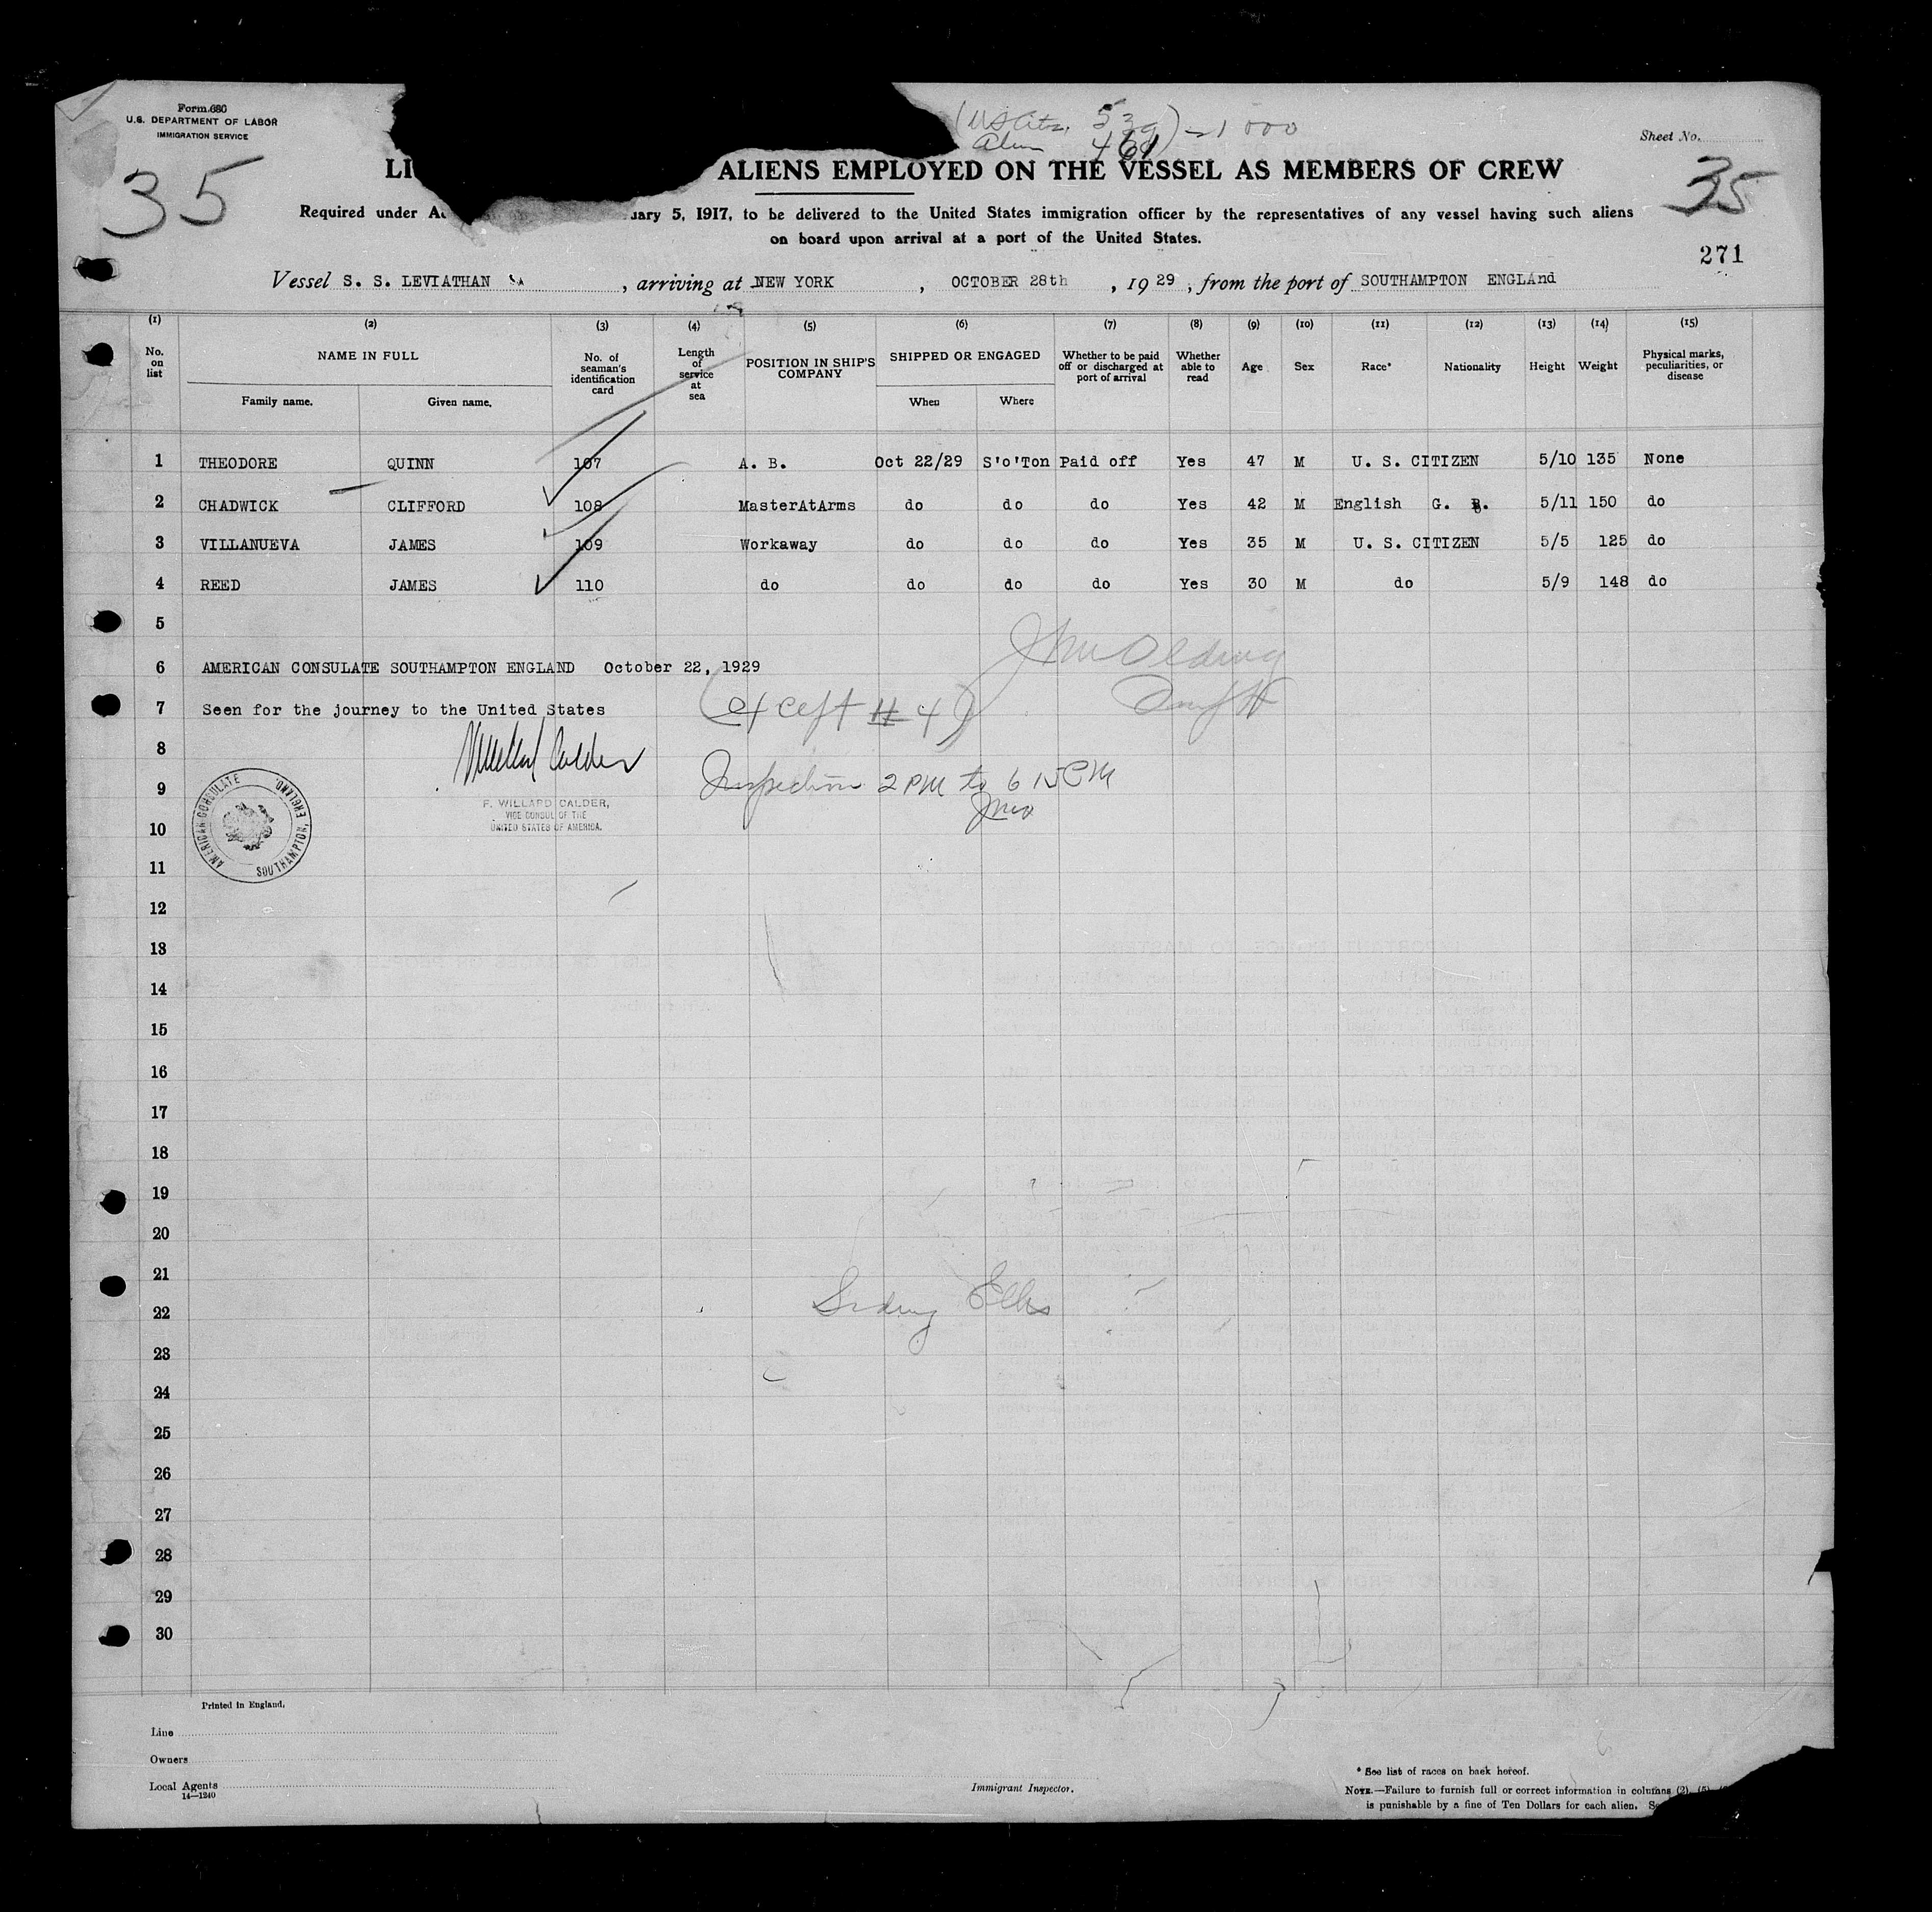 Form 680
U.S. DEPARTMENT OF LABOR
IMMIGRATION SERVICE
(US Citz. 539) – 1000
Alien 461
Sheet No.
35
35
LI ALIENS EMPLOYED ON THE VESSEL AS MEMBERS OF CREW
Required under A uary 5, 1917, to be delivered to the United States immigration officer by the representatives of any vessel having such aliens
on board upon arrival at a port of the United States.
271
Vessel S. S. LEVIATHAN, arriving at NEW YORK, OCTOBER 28th, 1929, from the port of SOUTHAMPTON ENGLAnd
(1) (2) (3) (4) (5) (6) (7) (8) (9) (10) (11) (12) (13) (14) (15)
No. on list NAME IN FULL No. of seaman's identification card Length of service at sea POSITION IN SHIP'S COMPANY SHIPPED OR ENGAGED Whether to be paid off or discharged at port of arrival Whether able to read Age Sex Race* Nationality Height Weight Physical marks, peculiarities, or disease
Family name. Given name. When Where
1 THEODORE QUINN 107 A. B. Oct 22/29 S'o'Ton Paid off Yes 47 M U. S. CITIZEN 5/10 135 None
2 CHADWICK CLIFFORD 108 MasterAtArms do do do Yes 42 M English G. B. 5/11 150 do
3 VILLANUEVA JAMES 109 Workaway do do do Yes 35 M U. S. CITIZEN 5/5 125 do
4 REED JAMES 110 do do do do Yes 30 M do 5/9 148 do
5
6 AMERICAN CONSULATE SOUTHAMPTON ENGLAND October 22, 1929
7 Seen for the journey to the United States (except # 4)
8
9 Inspection 2 PM to 6 15 PM
F. WILLARD CALDER,
VICE CONSUL OF THE
UNITED STATES OF AMERICA.
AMERICAN CONSULATE
SOUTHAMPTON, ENGLAND.
10
11
12
13
14
15
16
17
18
19
20
21
22
23
24
25
26
27
28
29
30
Printed in England.
Line
Owners
Local Agents
14—1240
Immigrant Inspector.
* See list of races on back hereof.
NOTE.—Failure to furnish full or correct information in columns (2), (5),
is punishable by a fine of Ten Dollars for each alien.